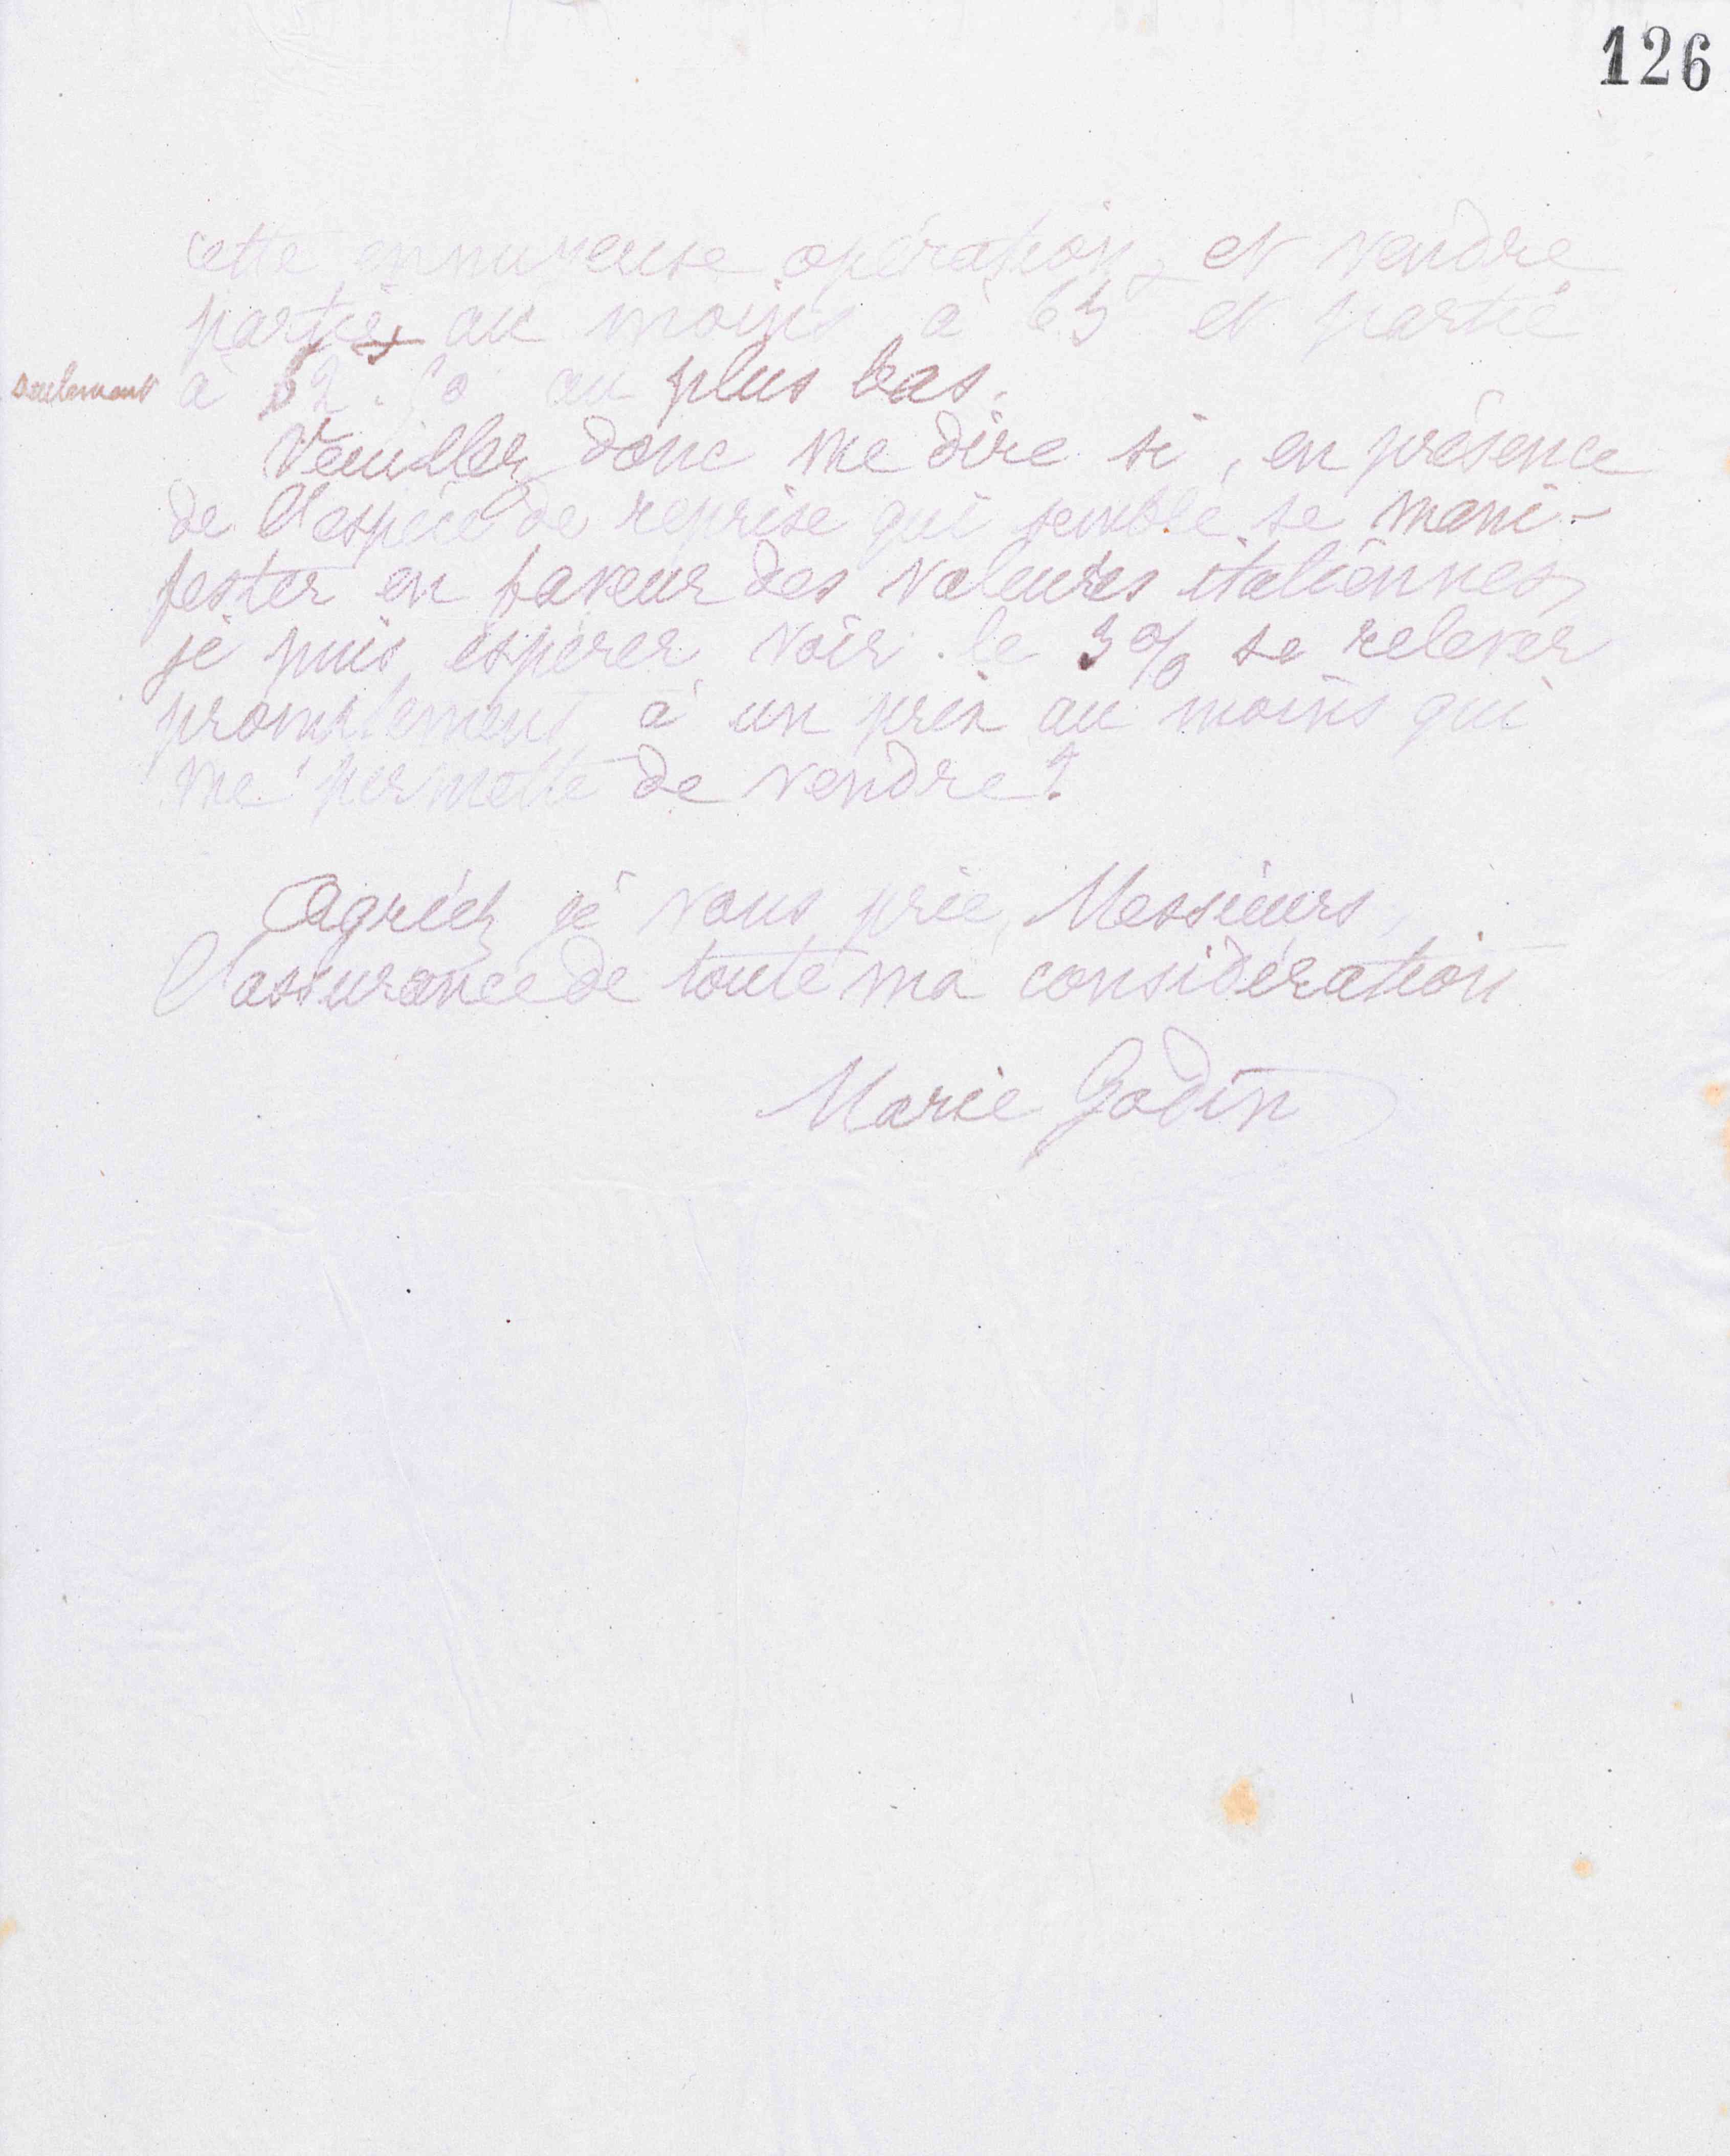 126
cette ennuyeuse opération, et vendre
partie + au moins à 63 et partie
seulement à 62.50 au plus bas.
Veuillez donc me dire si, en présence
de l'espèce de reprise qui semble se mani-
fester en faveur des valeurs italiennes,
je puis espérer voir le 3% se relever
promptement à un prix au moins qui
me permette de vendre?
Agréez je vous prie, Messieurs,
l'assurance de toute ma considération
Marie Godin